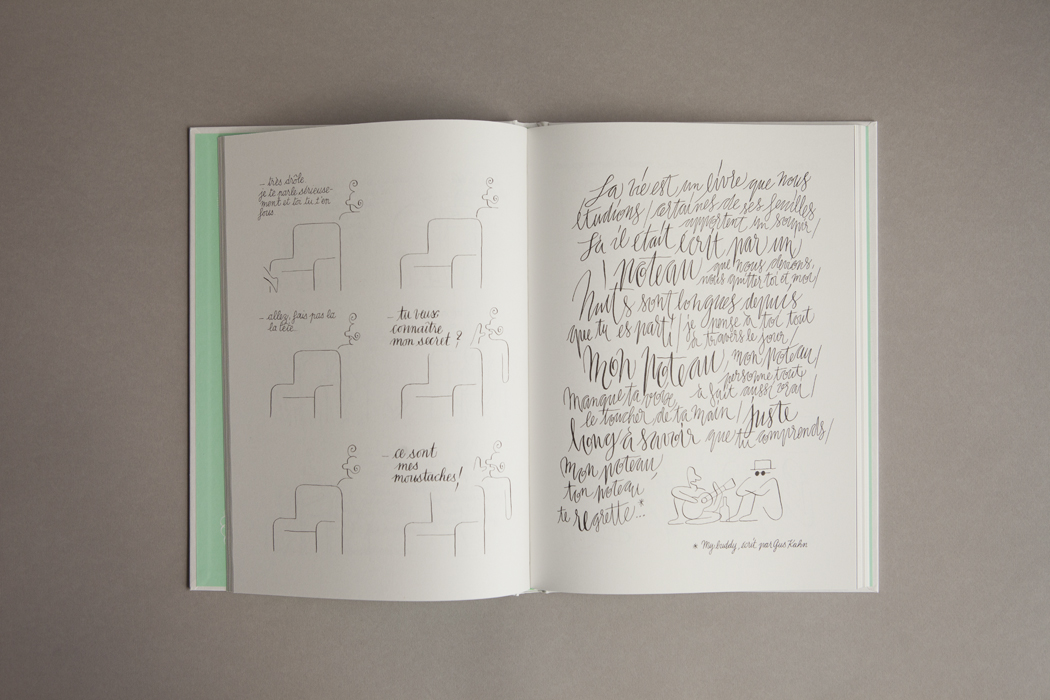 – très drôle
je te parle sérieuse-
ment et toi tu t'en
fous
– allez, fais pas la
la tête..
– tu veux
connaître
mon secret ?
– ce sont
mes
moustaches!
La vie est un livre que nous
étudions / certaines de ses feuilles
apportent un soupir /
Là il était écrit par un
poteau que nous devions,
nous quitter toi et moi /
Nuits sont longues depuis
que tu es parti / je pense à toi tout
à travers le jour /
Mon poteau, mon poteau /
personne toute
Manque ta voix, à fait aussi vrai /
le toucher de ta main / juste
long à savoir que tu comprends /
mon poteau,
ton poteau,
te regrette...*
* My buddy, écrit par Gus Kahn